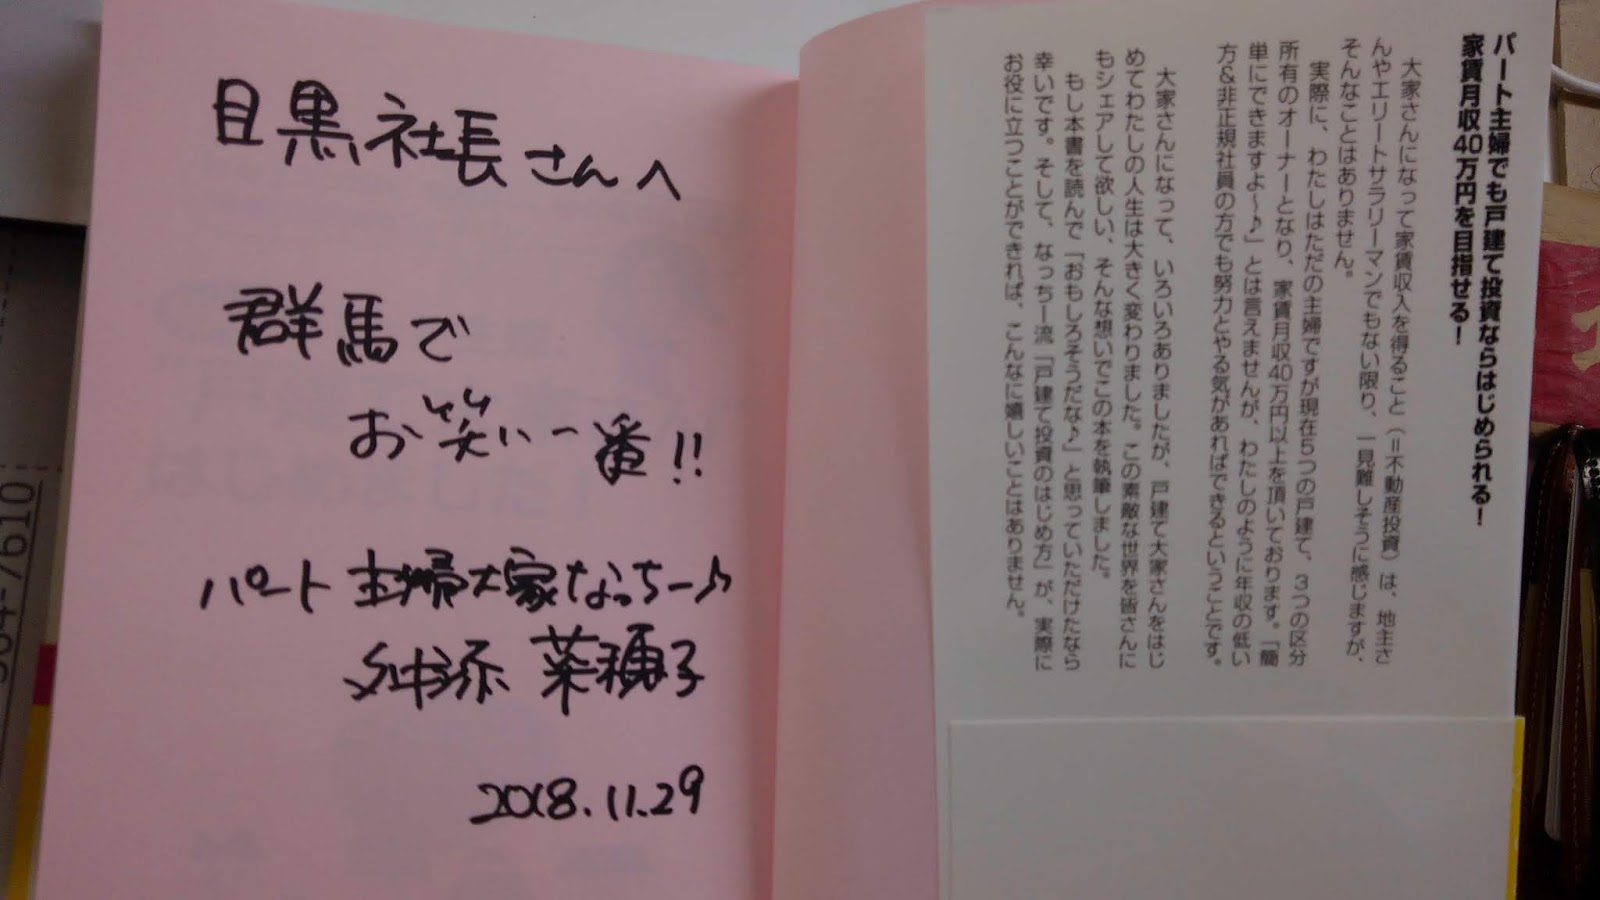 目黒社長さんへ
群馬で
お笑い一番!!
パート主婦大家なっちー♪
舛添 菜穂子
2018.11.29
パート主婦でも戸建て投資ならはじめられる！
家賃月収40万円を目指せる！
大家さんになって家賃収入を得ること（＝不動産投資）は、地主さ
んやエリートサラリーマンでもない限り、一見難しそうに感じますが、
そんなことはありません。
実際に、わたしはただの主婦ですが現在５つの戸建て、３つの区分
所有のオーナーとなり、家賃月収40万円以上を頂いております。「簡
単にできますよ～♪」とは言えませんが、わたしのように年収の低い
方＆非正規社員の方でも努力とやる気があればできるということです。
大家さんになって、いろいろありましたが、戸建て大家さんをはじ
めてわたしの人生は大きく変わりました。この素敵な世界を皆さんに
もシェアして欲しい、そんな想いでこの本を執筆しました。
もし本書を読んで「おもしろそうだな♪」と思っていただけたなら
幸いです。そして、なっちー流「戸建て投資のはじめ方」が、実際に
お役に立つことができれば、こんなに嬉しいことはありません。